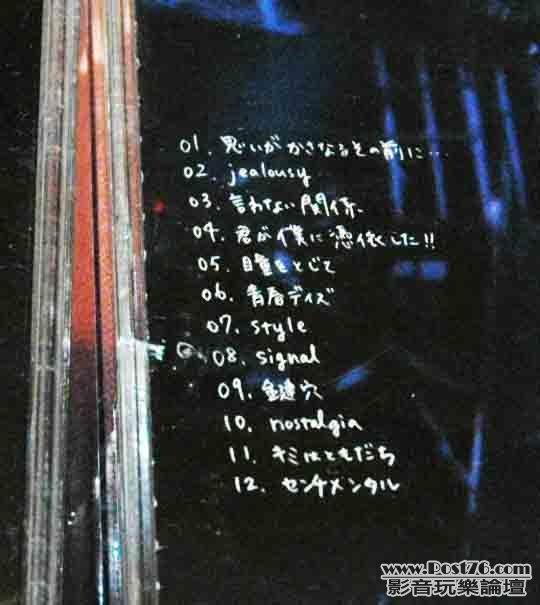 01. 思いがかさなるその前に…
02. jealousy
03. 言わない関係
04. 君が僕に憑依した!!
05. 瞳をとじて
06. 青春デイズ
07. style
08. signal
09. 鍵穴
10. nostalgia
11. キミはともだち
12. センチメンタル
www.Post76.com
影音玩樂論壇